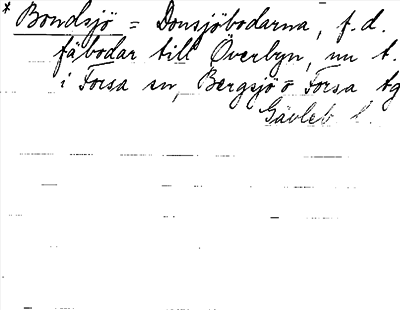 * Bondsjö = Donsjöbodarna, f.d.
fäbodar till Överbyn, nu t.
i Forsa sn, Bergsjö o Forsa tg
Gävleb l.